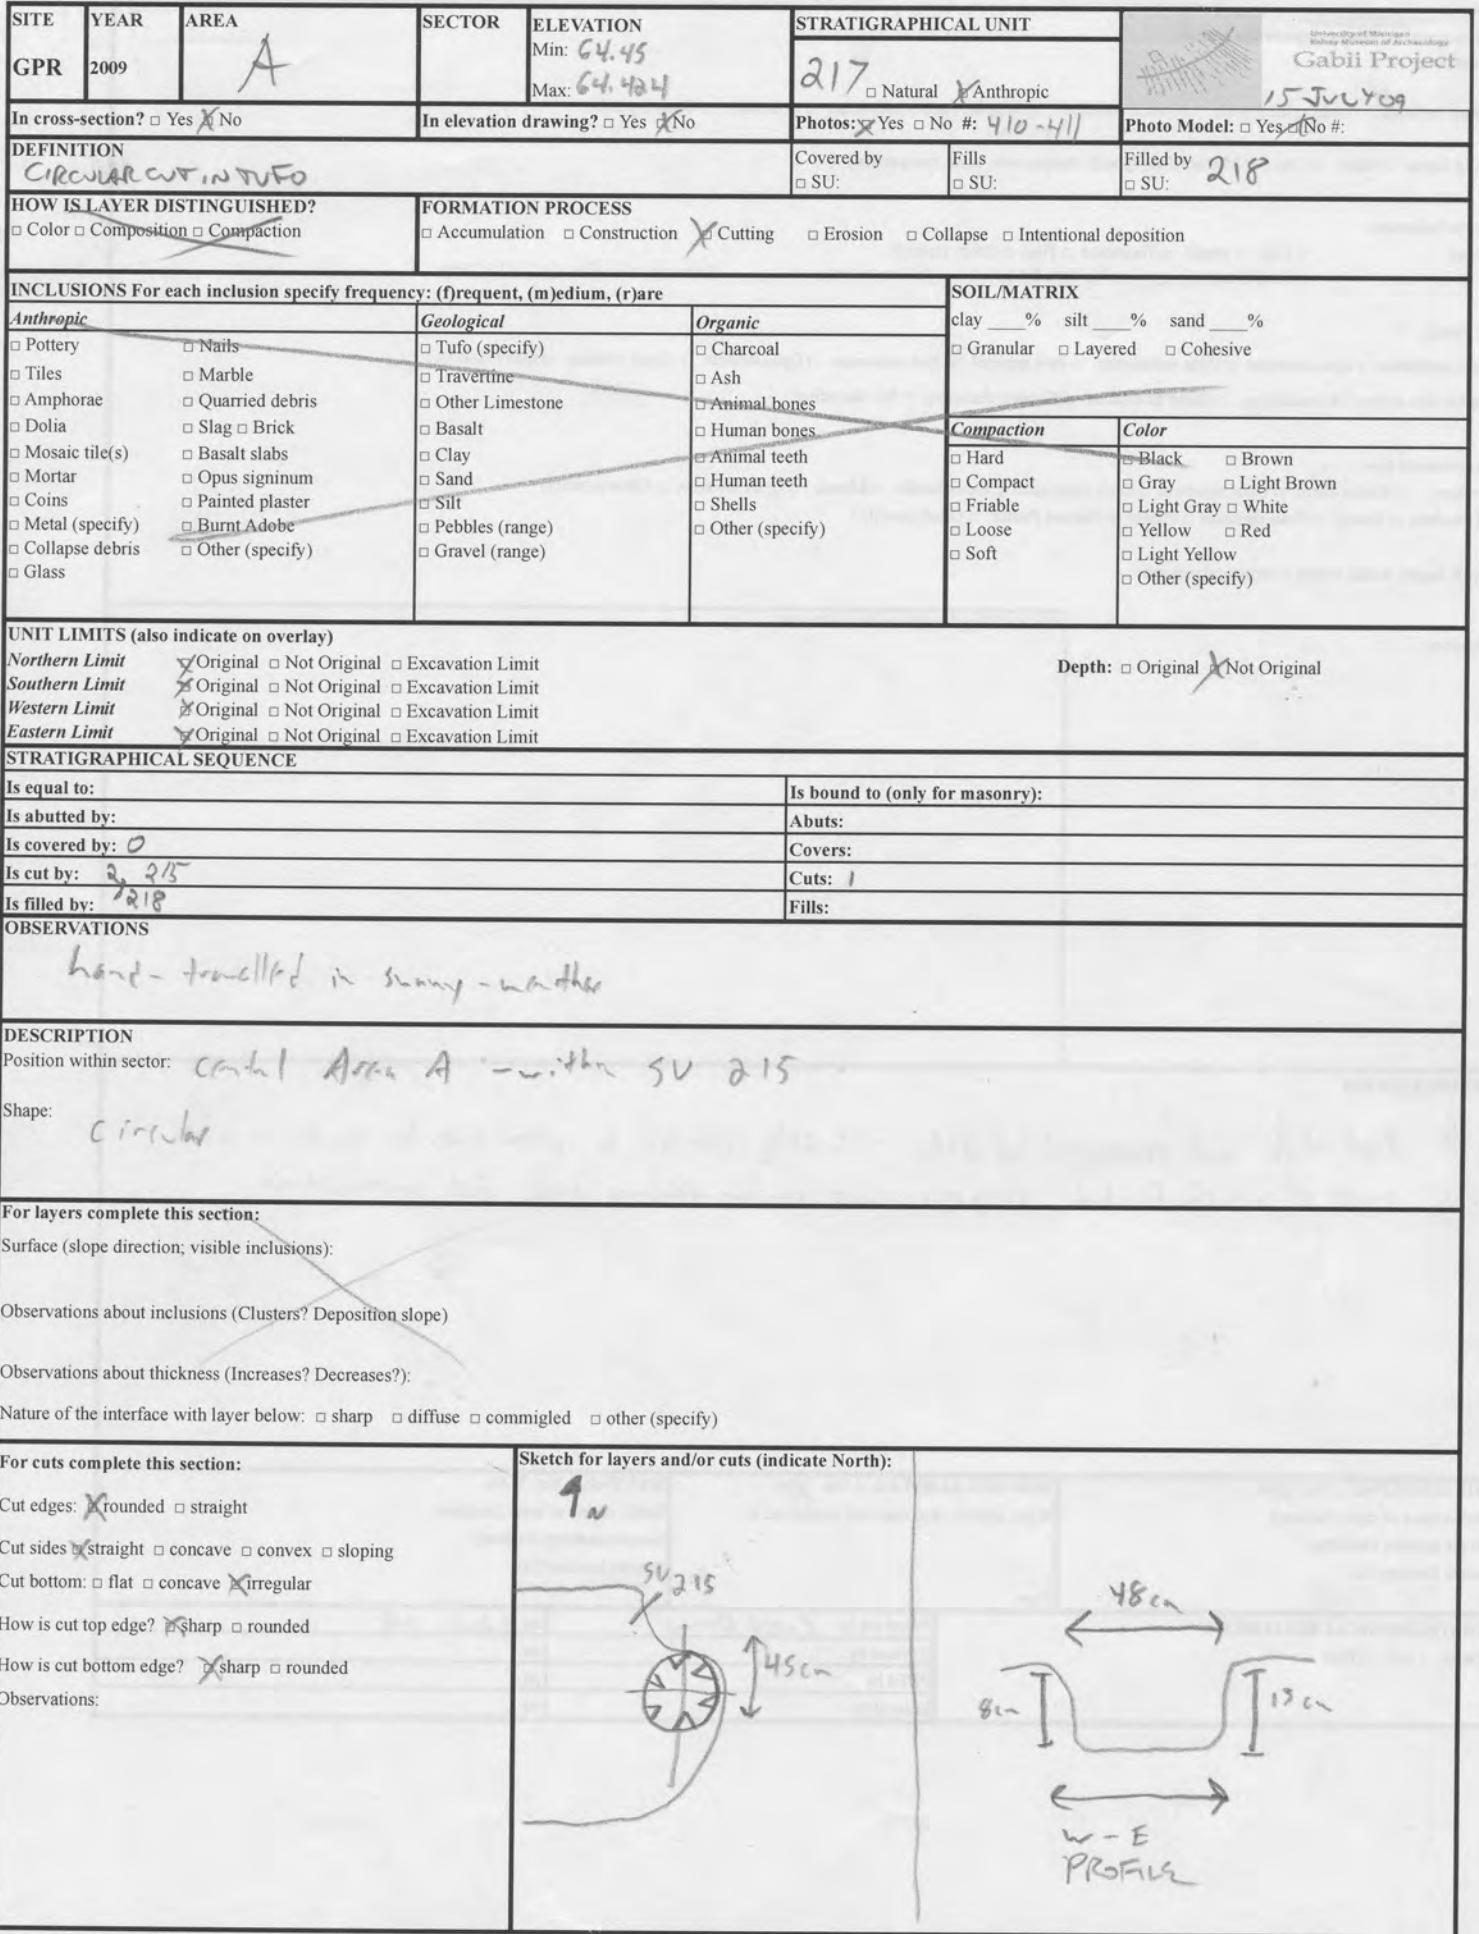 SITE YEAR AREA SECTOR ELEVATION STRATIGRAPHICAL UNIT
GPR 2009 A
Min: 64.45
Max: 64.424
217 □ Natural ☒ Anthropic
University of Michigan
Kelsey Museum of Archaeology
Gabii Project
15 JULY 09
In cross-section? □ Yes ☒ No In elevation drawing? □ Yes ☒ No Photos: ☒ Yes □ No #: 410-411 Photo Model: □ Yes ☒ No #:
DEFINITION
CIRCULAR CUT IN TUFO
Covered by
□ SU:
Fills
□ SU:
Filled by
□ SU: 218
HOW IS LAYER DISTINGUISHED?
□ Color □ Composition □ Compaction
FORMATION PROCESS
□ Accumulation □ Construction ☒ Cutting □ Erosion □ Collapse □ Intentional deposition
INCLUSIONS For each inclusion specify frequency: (f)requent, (m)edium, (r)are
Anthropic
□ Pottery □ Nails
□ Tiles □ Marble
□ Amphorae □ Quarried debris
□ Dolia □ Slag □ Brick
□ Mosaic tile(s) □ Basalt slabs
□ Mortar □ Opus signinum
□ Coins □ Painted plaster
□ Metal (specify) □ Burnt Adobe
□ Collapse debris □ Other (specify)
□ Glass
Geological
□ Tufo (specify)
□ Travertine
□ Other Limestone
□ Basalt
□ Clay
□ Sand
□ Silt
□ Pebbles (range)
□ Gravel (range)
Organic
□ Charcoal
□ Ash
□ Animal bones
□ Human bones
□ Animal teeth
□ Human teeth
□ Shells
□ Other (specify)
SOIL/MATRIX
clay ____% silt ____% sand ____%
□ Granular □ Layered □ Cohesive
Compaction
□ Hard
□ Compact
□ Friable
□ Loose
□ Soft
Color
□ Black □ Brown
□ Gray □ Light Brown
□ Light Gray □ White
□ Yellow □ Red
□ Light Yellow
□ Other (specify)
UNIT LIMITS (also indicate on overlay)
Northern Limit ☒ Original □ Not Original □ Excavation Limit
Southern Limit ☒ Original □ Not Original □ Excavation Limit
Western Limit ☒ Original □ Not Original □ Excavation Limit
Eastern Limit ☒ Original □ Not Original □ Excavation Limit
Depth: □ Original ☒ Not Original
STRATIGRAPHICAL SEQUENCE
Is equal to: Is bound to (only for masonry):
Is abutted by: Abuts:
Is covered by: 0 Covers:
Is cut by: 2, 215 Cuts: 1
Is filled by: 218 Fills:
OBSERVATIONS
hand-trowelled in sunny-weather
DESCRIPTION
Position within sector: Central Area A - within SU 215
Shape: Circular
For layers complete this section:
Surface (slope direction; visible inclusions):
Observations about inclusions (Clusters? Deposition slope)
Observations about thickness (Increases? Decreases?):
Nature of the interface with layer below: □ sharp □ diffuse □ commigled □ other (specify)
For cuts complete this section:
Cut edges: ☒ rounded □ straight
Cut sides ☒ straight □ concave □ convex □ sloping
Cut bottom: □ flat □ concave ☒ irregular
How is cut top edge? ☒ sharp □ rounded
How is cut bottom edge? ☒ sharp □ rounded
Observations:
Sketch for layers and/or cuts (indicate North):
N
SU 215
45cm
48cm
8cm
13cm
W-E
PROFILE